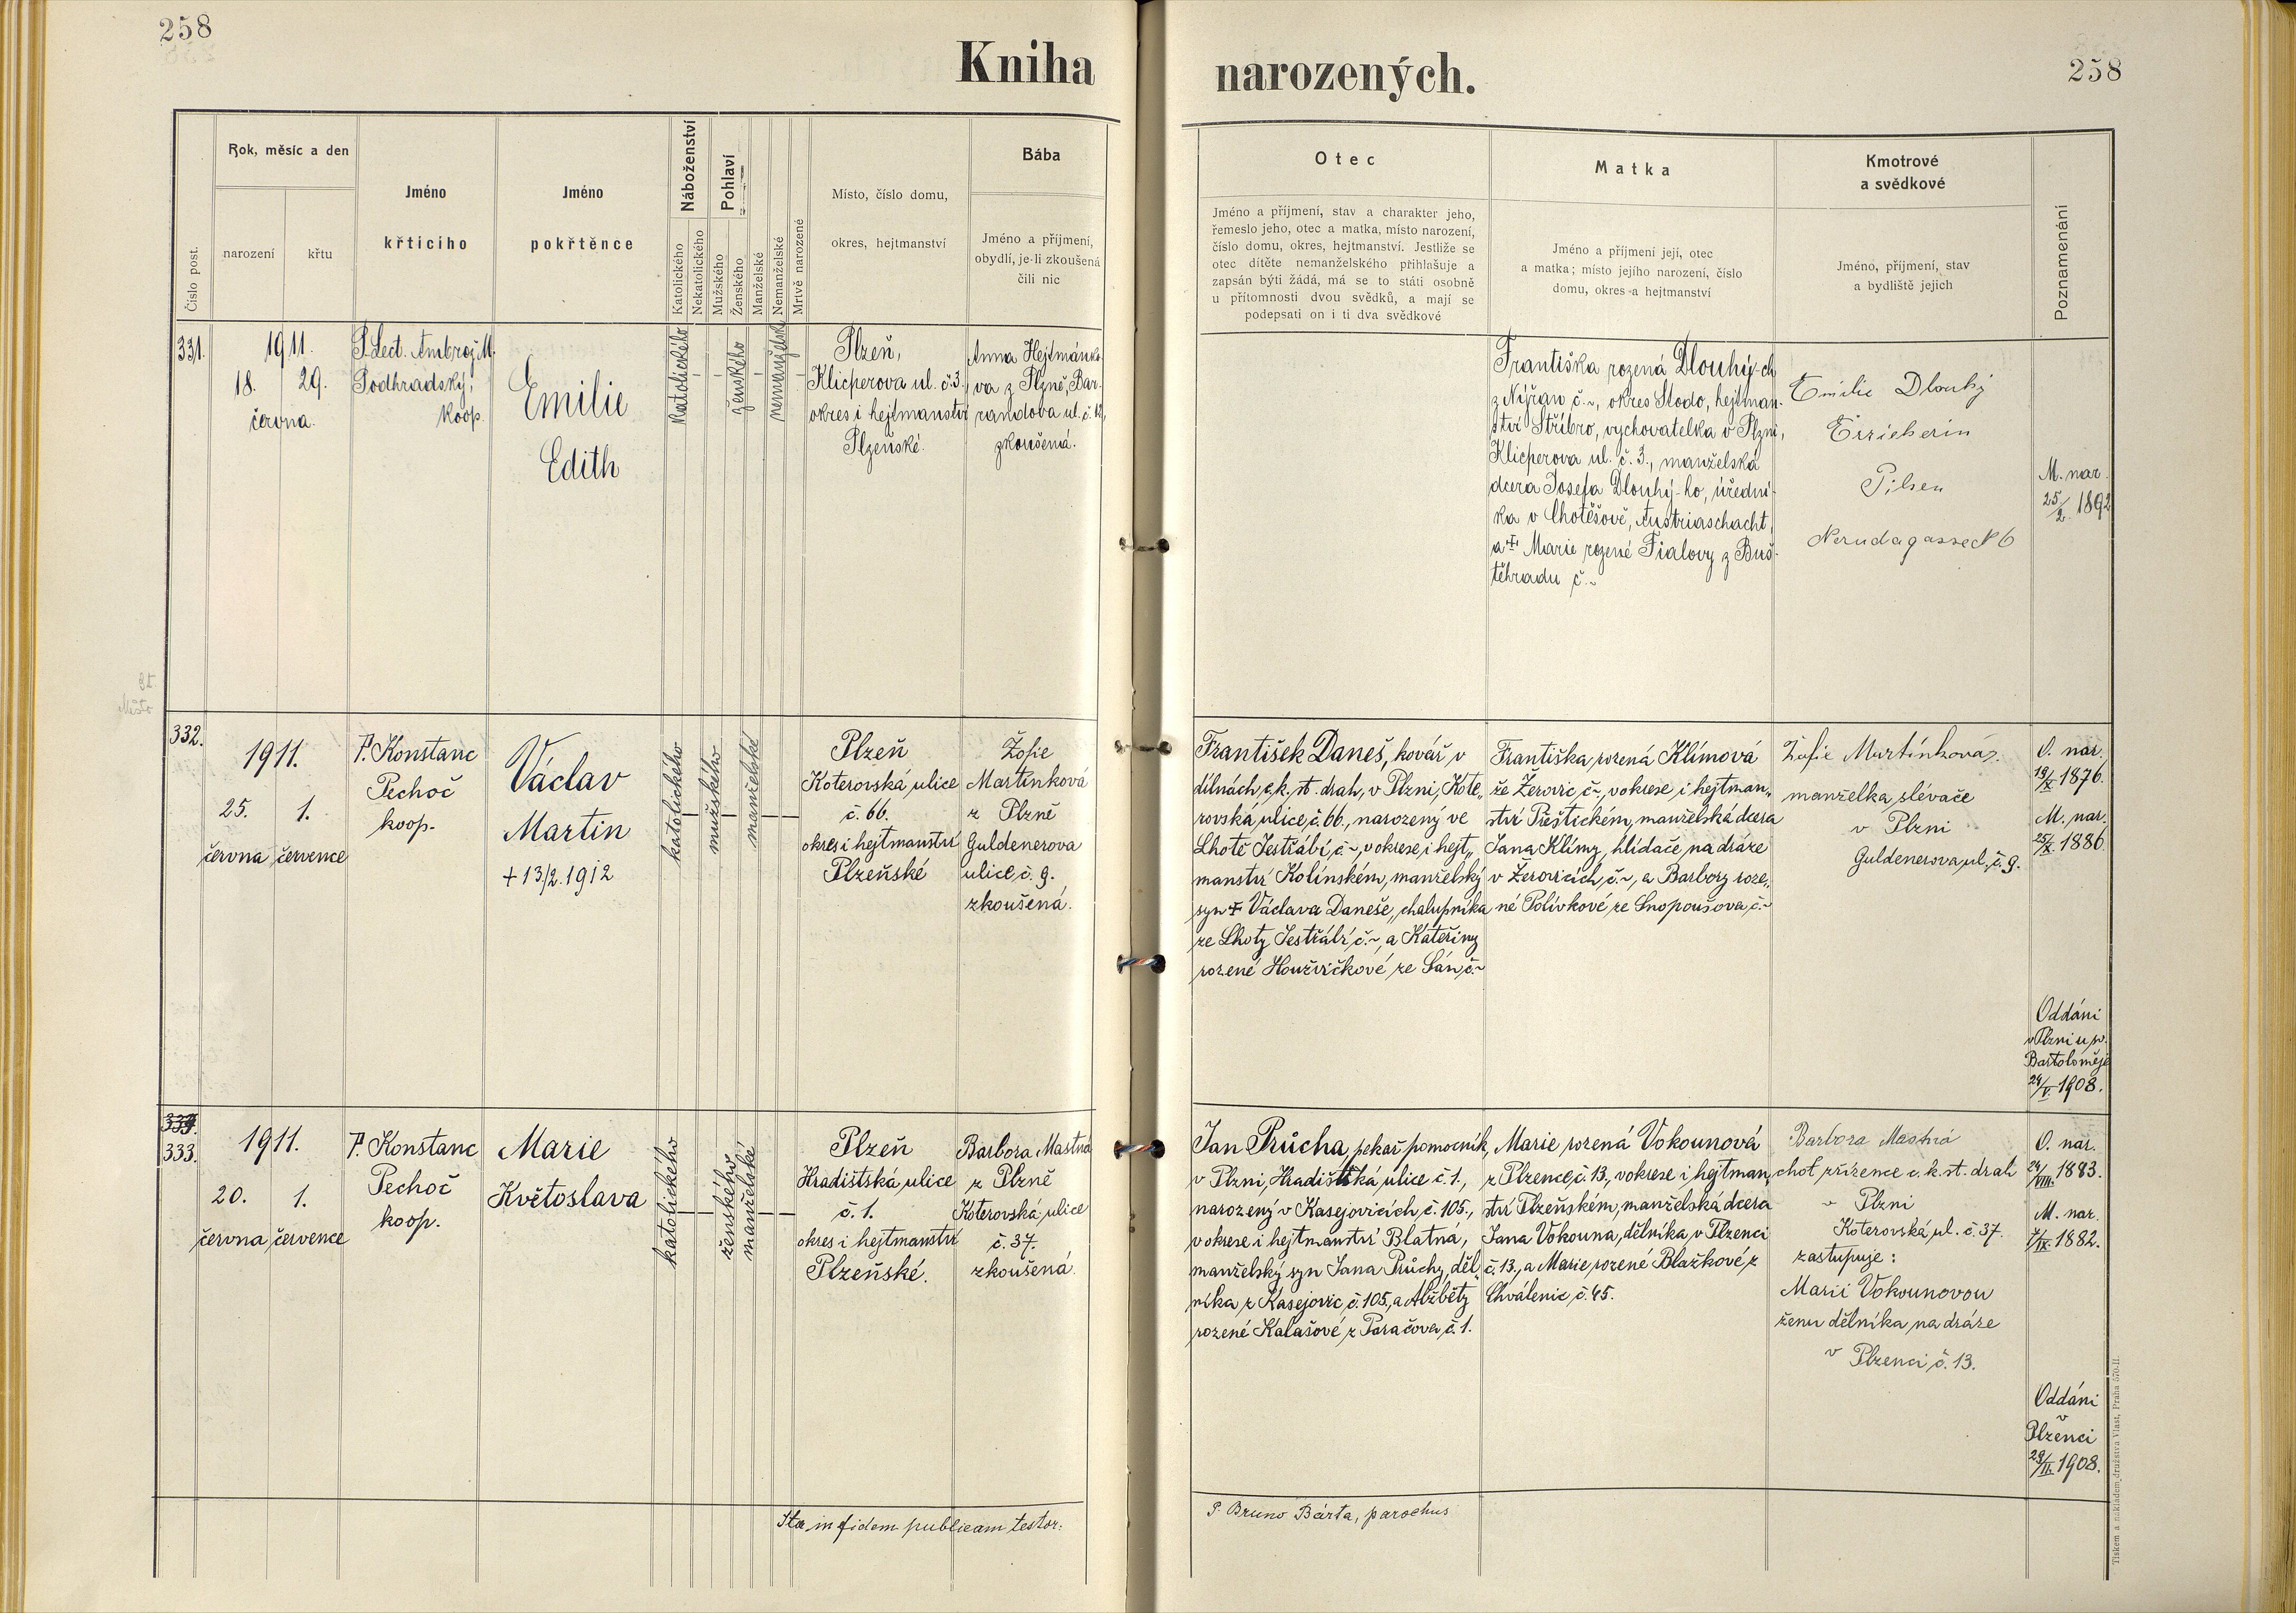 258
Kniha
narozených.
258
Číslo post.
Rok, měsíc a den
narození
křtu
Jméno
křtícího
Jméno
pokřtěnce
Náboženství
Katolického
Nekatolického
Pohlaví
Mužského
Ženského
Manželské
Nemanželské
Mrtvě narozené
Místo, číslo domu,
okres, hejtmanství
Bába
Jméno a příjmení,
obydlí, je-li zkoušená
čili nic
Otec
Jméno a příjmení, stav a charakter jeho,
řemeslo jeho, otec a matka, místo narození,
číslo domu, okres, hejtmanství. Jestliže se
otec dítěte nemanželského přihlašuje a
zapsán býti žádá, má se to státi osobně
u přítomnosti dvou svědků, a mají se
podepsati on i ti dva svědkové
Matka
Jméno a příjmení její, otec
a matka; místo jejího narození, číslo
domu, okres a hejtmanství
Kmotrové
a svědkové
Jméno, příjmení, stav
a bydliště jejich
Poznamenání
331.
1911.
18. 29.
června.
P. Lect. Ambrož M.
Podhradský,
koop.
Emilie
Edith
katolického
ženského
nemanželské
Plzeň,
Klicperova ul. č. 3.,
okres i hejtmanství
Plzeňské.
Anna Hejtmánko-
va z Plzně, Bar-
randova ul. č. 12,
zkoušená.
Františka rozená Dlouhý-ch
z Nýřan č. ~, okres Stodo, hejtman-
ství Stříbro, vychovatelka v Plzni,
Klicperova ul. č. 3., manželská
dcera Josefa Dlouhý-ho, úřední-
ka v Chotěšově, Austriaschacht,
a + Marie rozené Fialovy z Buš-
těhradu č. ~
Emilie Dlouhý
Erzieherin
Pilsen
Nerudagasse N 6
M. nar.
25/2. 1892
332.
1911.
25. 1.
června července
P. Konstanc
Pechoč
koop.
Václav
Martin
+ 13/2. 1912
katolického
mužského
manželské
Plzeň
Koterovská ulice
č. 66.
okres i hejtmanství
Plzeňské
Žofie
Martínková
z Plzně
Guldenerova
ulice č. 9.
zkoušená.
František Daneš, kovář v
dílnách c. k. st. drah, v Plzni, Kote„
rovská ulice, č. 66., narozený ve
Lhotě Jestřábí, č. ~, v okrese i hejt„
manství Kolínském, manželský
syn + Václava Daneše, chalupníka
ze Lhoty Jestřábí č. ~, a Kateřiny
rozené Houžvičkové ze Sán, č. ~
Františka, rozená Klímová
ze Žerovic č. ~, v okrese i hejtman„
ství Přeštickém, manželská dcera
Jana Klímy, hlídače na dráze
v Žerovicích, č. ~, a Barbory roze„
né Polívkové ze Snopoušova, č. ~
Žofie Martínková
manželka slévače
v Plzni
Guldenerova ul., č. 9.
O. nar.
19/X. 1876.
M. nar.
25/X. 1886.
Oddáni
v Plzni u sv.
Bartoloměje
24/V. 1908.
333.
1911.
20. 1.
června července
P. Konstanc
Pechoč
koop.
Marie
Květoslava
katolického
ženského
manželské
Plzeň
Hradištská ulice
č. 1.
okres i hejtmanství
Plzeňské.
Barbora Mastná
z Plzně
Koterovská ulice
č. 37.
zkoušená.
Jan Průcha, pekař pomocník,
v Plzni, Hradištská ulice č. 1.,
narozený v Kasejovicích, č. 105.,
v okrese i hejtmanství Blatná,
manželský syn Jana Průchy, děl„
níka z Kasejovic, č. 105., a Alžběty
rozené Kalašové z Paračova, č. 1.
Marie rozená Vokounová
z Plzence, č. 13., v okrese i hejtman„
ství Plzeňském, manželská dcera
Jana Vokouna, dělníka, v Plzenci
č. 13., a Marie rozené Blažkové z
Chválenic, č. 45.
Barbora Mastná
choť zřízence c. k. st. drah
v Plzni
Koterovská ul. č. 37.
zastupuje:
Marii Vokounovou
ženu dělníka na dráze
v Plzenci č. 13.
O. nar.
24/VIII. 1883.
M. nar.
7/IX. 1882.
Oddáni
v
Plzenci
29/II. 1908.
Ita in fidem publicam testor:
P. Bruno Bárta, parochus
Tiskem a nákladem družstva Vlast, Praha 570-II.